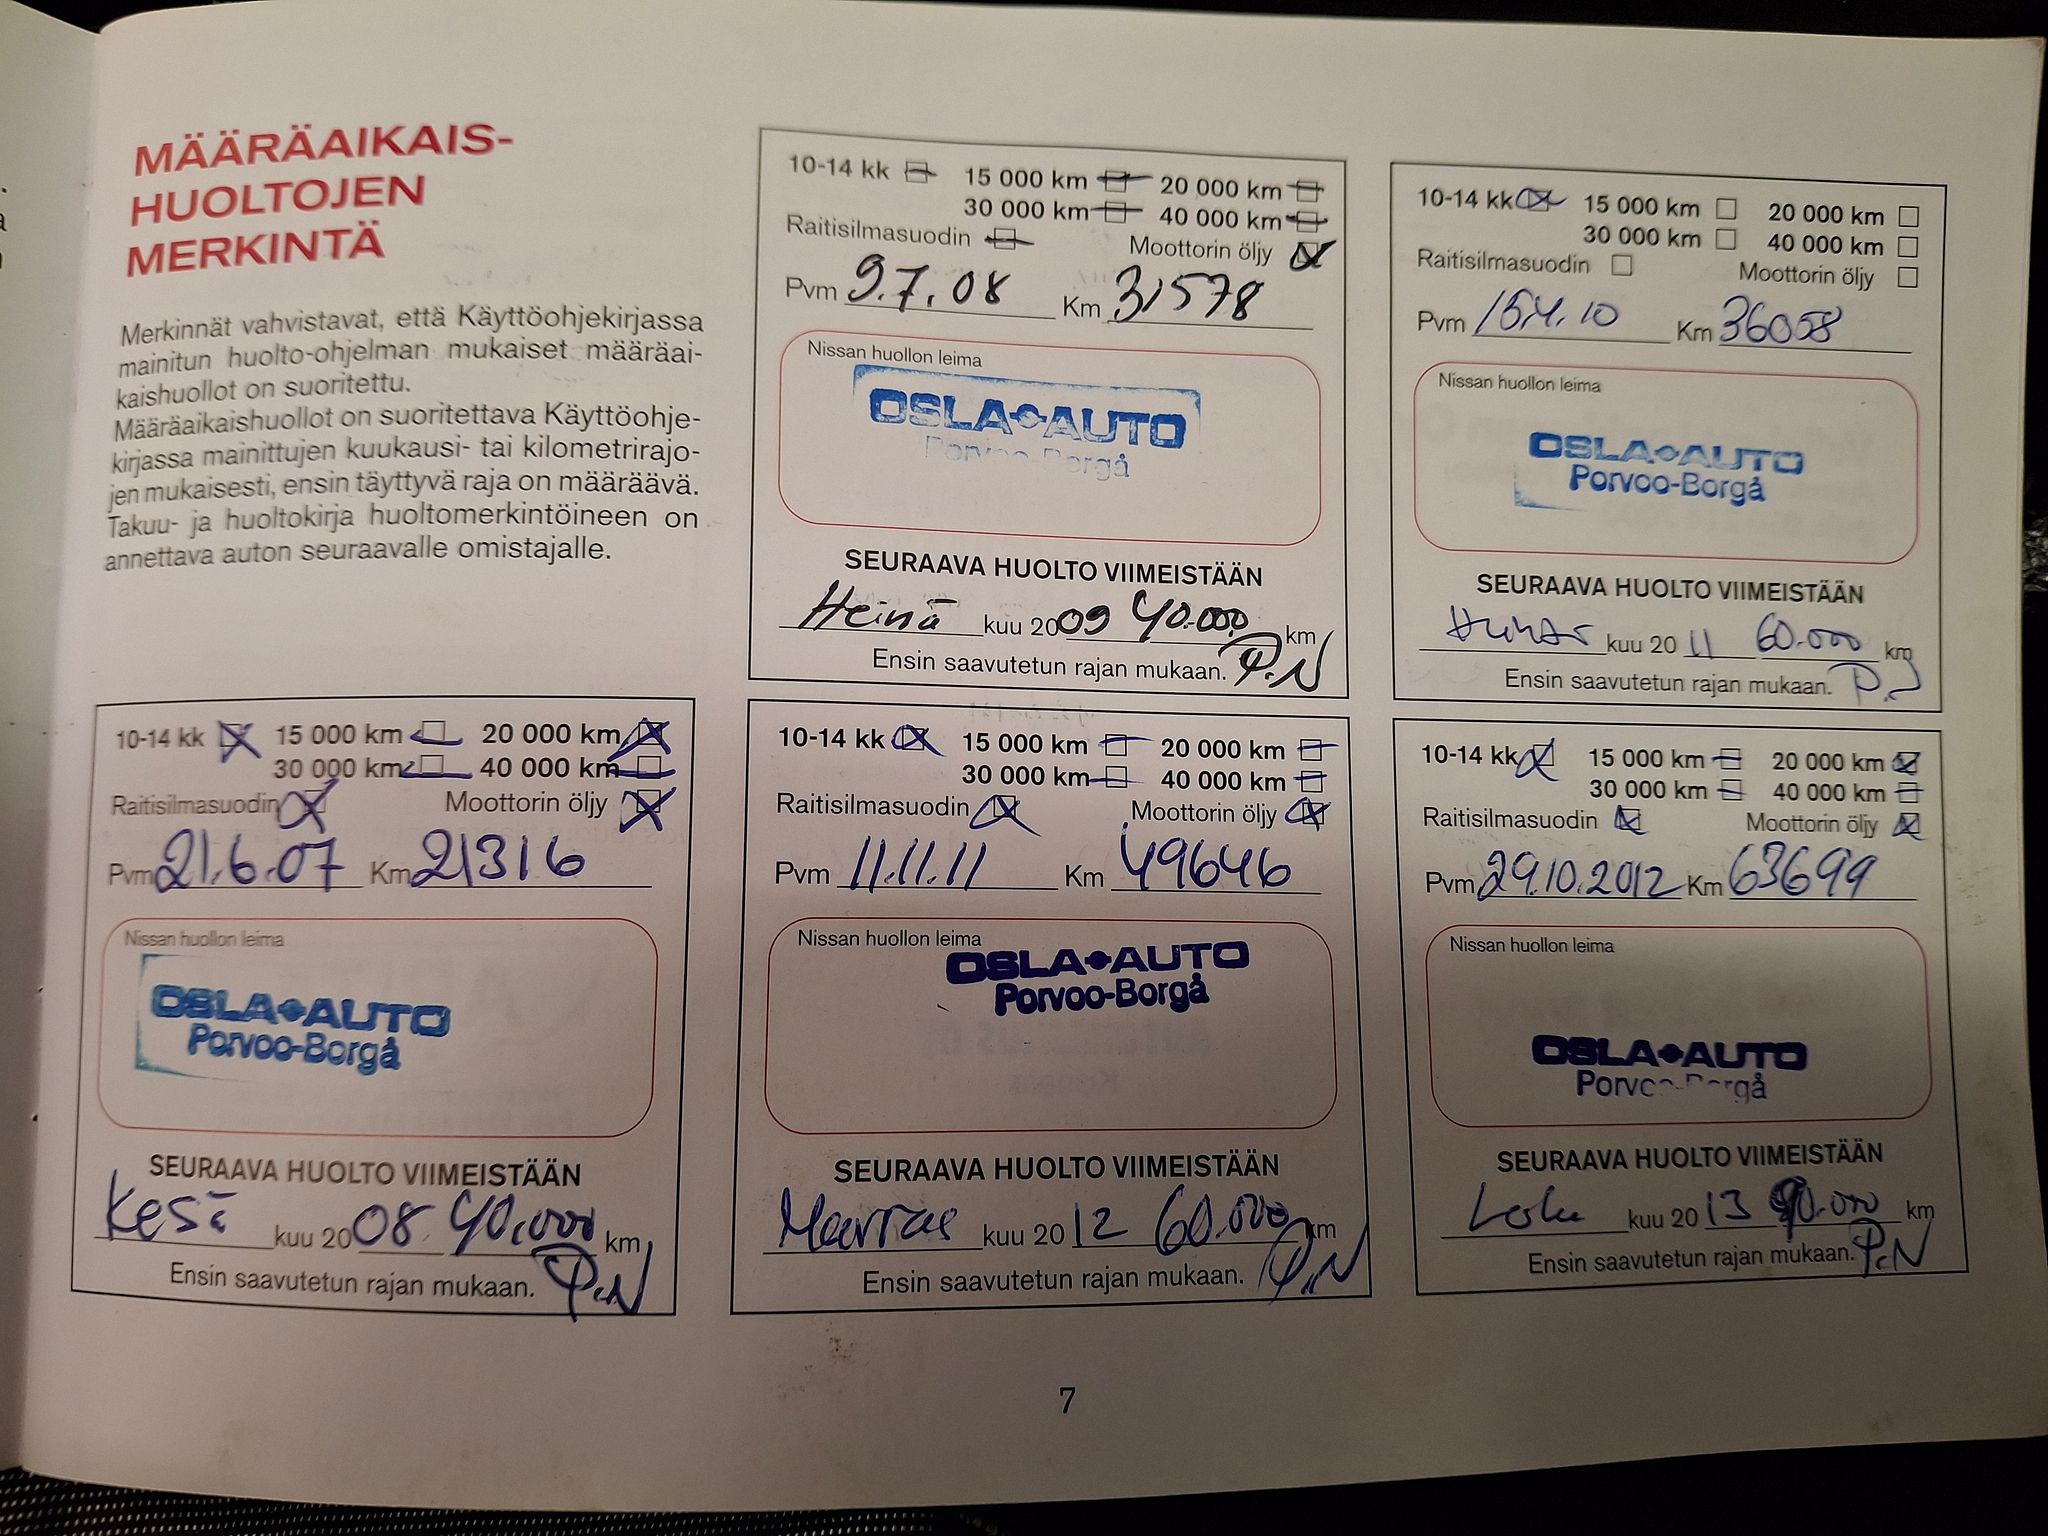 MÄÄRÄAIKAIS-
HUOLTOJEN
MERKINTÄ
Merkinnät vahvistavat, että Käyttöohjekirjassa
mainitun huolto-ohjelman mukaiset määräai-
kaishuollot on suoritettu.
Määräaikaishuollot on suoritettava Käyttöohje-
kirjassa mainittujen kuukausi- tai kilometrirajo-
jen mukaisesti, ensin täyttyvä raja on määräävä.
Takuu- ja huoltokirja huoltomerkintöineen on
annettava auton seuraavalle omistajalle.
10-14 kk 15 000 km 20 000 km
30 000 km 40 000 km
Raitisilmasuodin Moottorin öljy
Pvm 9.7.08 Km 31578
Nissan huollon leima
OSLA AUTO
Porvoo-Borgå
SEURAAVA HUOLTO VIIMEISTÄÄN
Heinä kuu 2009 40.000 km
Ensin saavutetun rajan mukaan. P.N
10-14 kk 15 000 km 20 000 km
30 000 km 40 000 km
Raitisilmasuodin Moottorin öljy
Pvm 15.4.10 Km 36058
Nissan huollon leima
OSLA AUTO
Porvoo-Borgå
SEURAAVA HUOLTO VIIMEISTÄÄN
kuu 20 11 60.000 km
Ensin saavutetun rajan mukaan.
10-14 kk 15 000 km 20 000 km
30 000 km 40 000 km
Raitisilmasuodin Moottorin öljy
Pvm 21.6.07 Km 21316
Nissan huollon leima
OSLA AUTO
Porvoo-Borgå
SEURAAVA HUOLTO VIIMEISTÄÄN
Kesä kuu 2008 40.000 km
Ensin saavutetun rajan mukaan. P.N
10-14 kk 15 000 km 20 000 km
30 000 km 40 000 km
Raitisilmasuodin Moottorin öljy
Pvm 11.11.11 Km 49646
Nissan huollon leima
OSLA AUTO
Porvoo-Borgå
SEURAAVA HUOLTO VIIMEISTÄÄN
Marras kuu 20 12 60.000 km
Ensin saavutetun rajan mukaan. P.N
10-14 kk 15 000 km 20 000 km
30 000 km 40 000 km
Raitisilmasuodin Moottorin öljy
Pvm 29.10.2012 Km 63699
Nissan huollon leima
OSLA AUTO
Porvoo-Borgå
SEURAAVA HUOLTO VIIMEISTÄÄN
Loka kuu 20 13 km
Ensin saavutetun rajan mukaan. P.N
7